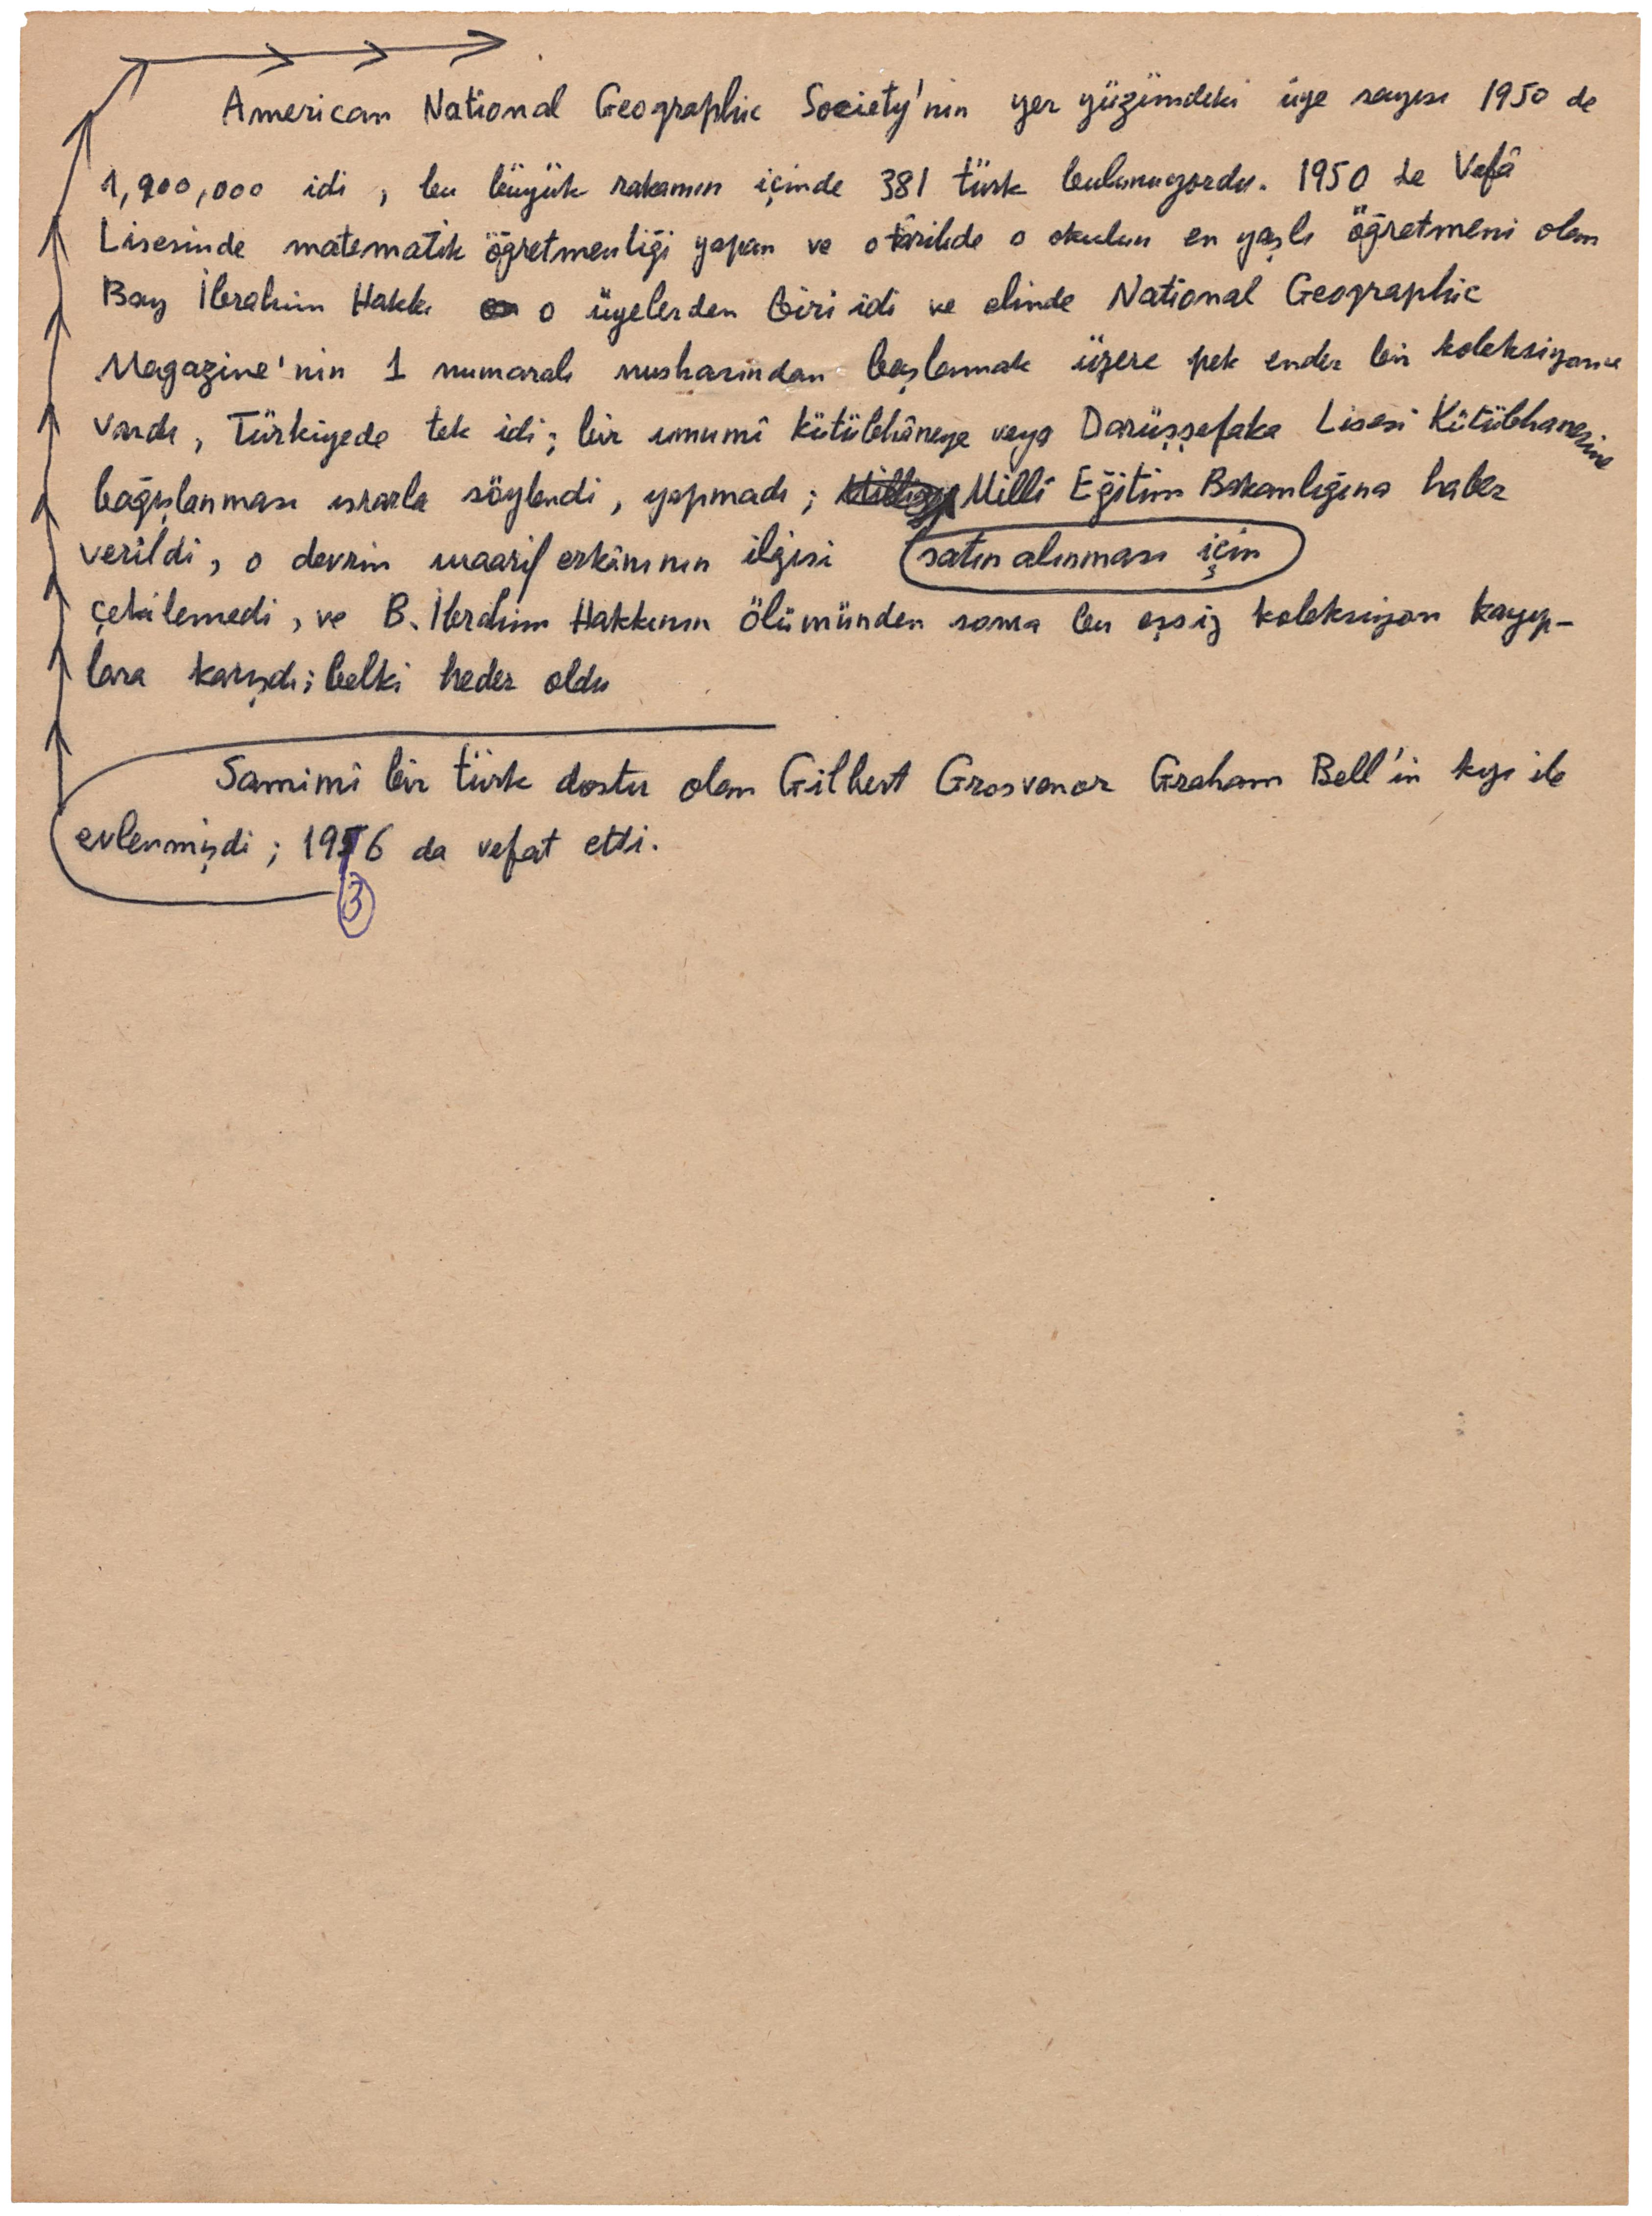 American National Geographic Society'nin yer yüzündeki üye sayısı 1950 de
1,900,000 idi, bu büyük rakamın içinde 381 türk bulunuyordu. 1950 de Vefâ
Lisesinde matematik öğretmenliği yapan ve o târihde o okulun en yaşlı öğretmeni olan
Bay İbrahim Hakkı o üyelerden biri idi ve elinde National Geographic
Magazine'nin 1 numaralı nushasından başlamak üzere pek ender bir koleksiyonu
vardı, Türkiyede tek idi; bir umumî kütübhâneye veya Darüşşafaka Lisesi Kütübhanesine
bağışlanması ısrarla söylendi, yapmadı; Millî Eğitim Bakanlığına haber
verildi, o devrin maarif erkânının ilgisi satın alınması için
çekilemedi, ve B. İbrahim Hakkının ölümünden sonra bu eşsiz koleksiyon kayıp-
lara karışdı; belki heder oldu
Samimî bir türk dostu olan Gilbert Grosvenor Graham Bell'in kızı ile
evlenmişdi; 1966 da vefat etti.
3